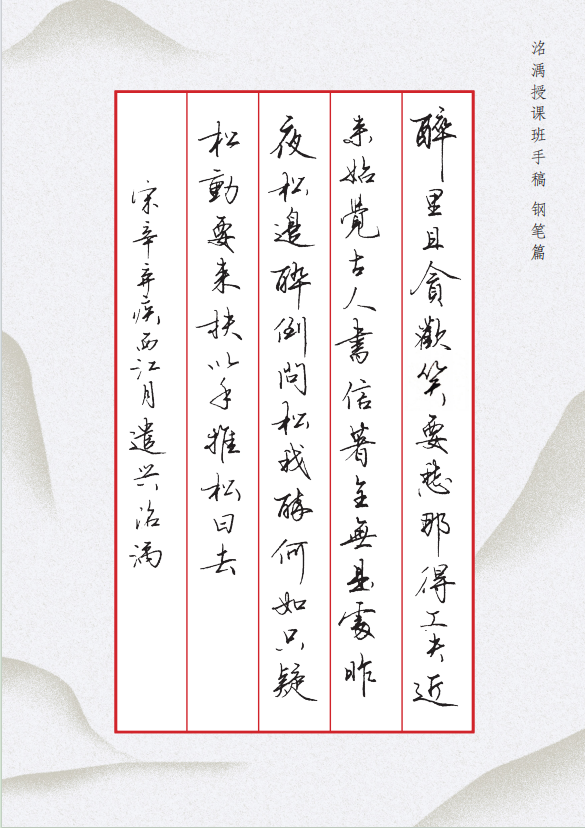 洺漹授课班手稿 钢笔篇
醉里且貪歡笑要愁那得工夫近
来始覺古人書信著全無是處昨
夜松邊醉倒問松我醉何如只疑
松動要来扶以手推松曰去
宋辛弃疾西江月遣兴洺漹